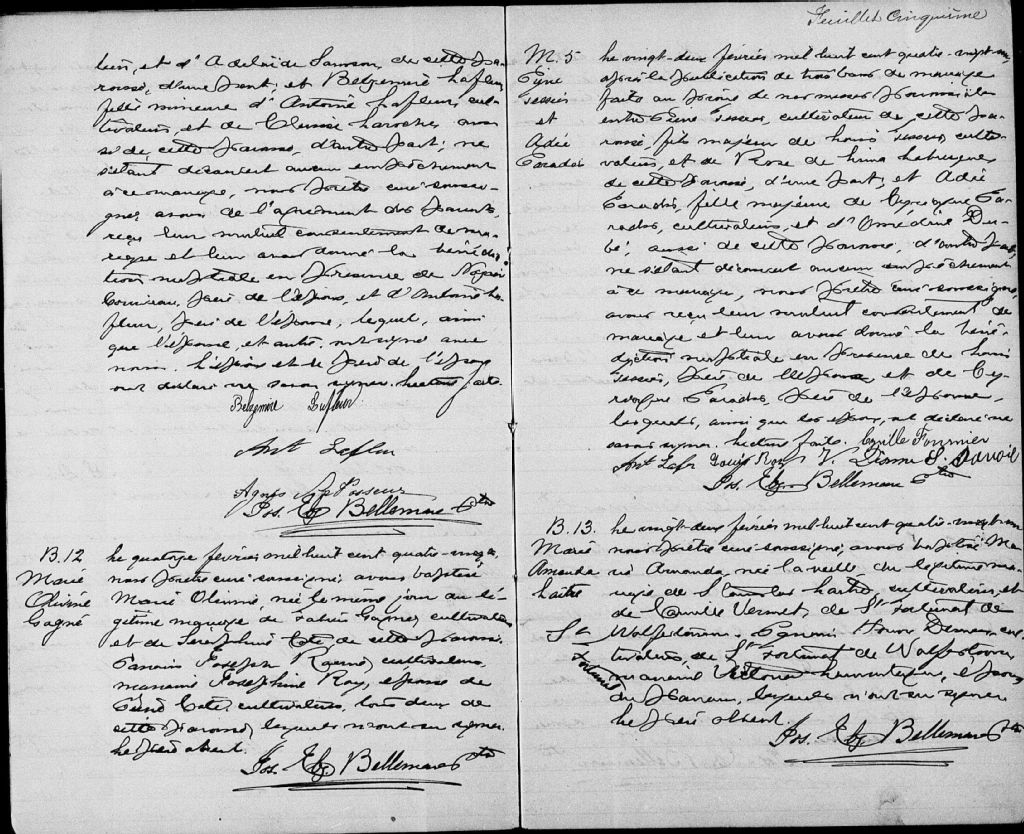 Feuillet Cinquième
bien, et d'Adelaide Samson, de cette pa-
roisse, d'une part; et Belzemire Lafleur,
fille mineure d'Antoine Lafleur, cul-
tivateur, et de Clarisse Laroche, aus-
si de cette paroisse, d'autre part; ne
s'étant découvert aucun empêchement
à ce mariage, nous prêtre curé soussi-
gné, avons de l'agrément des parents,
reçu leur mutuel consentement de ma-
riage et leur avons donné la bénédic-
tion nuptiale en présence de
père de l'époux, et d'Antoine La-
fleur, père de l'épouse, lequel, ainsi
que l'épouse, et autre, ont signé avec
nous. L'époux et le père de l'époux
ont déclaré ne savoir signer. Lecture faite.
Belzemire Lafleur
Ant Lafleur
Agnès LeVasseur
Jos. Elz Bellemare Ptre
B. 12
Marie
Olivine
Gagné
Le quatorze février mil huit cent quatre-vingt
nous prêtre curé soussigné, avons baptisé
Marie Olivine, née le même jour du lé-
gitime mariage de Gagné, cultivateur
et de Seraphine Coté, de cette paroisse.
Parrain Joseph cultivateur,
marraine Josephine Roy, épouse de
Coté, cultivateur, tous deux de
cette paroisse, lesquels n'ont su signer.
Le père absent.
Jos. Elz Bellemare Ptre
M. 5
et
Adée
Paradis
Le vingt-deux février mil huit cent quatre-vingt
après la publication de trois bans de mariage
faite au prône de nos messes paroissiales
entre cultivateur, de cette pa-
roisse, fils majeur de Louis culti-
vateur, et de Rose de Lima
de cette paroisse, d'une part; et Adée
Paradis, fille majeure de Cyriaque Pa-
radis, cultivateur, et d' Du-
bé, aussi de cette paroisse, d'autre part,
ne s'étant découvert aucun empêchement
à ce mariage, nous prêtre curé soussigné,
avons reçu leur mutuel consentement de
mariage et leur avons donné la béné-
diction nuptiale en présence de Louis
père de l'époux, et de Cy-
riaque Paradis, père de l'épouse,
lesquels, ainsi que les époux, ont déclaré ne
savoir signer. Lecture faite. Cyrille Fournier
Ant Lafr Louis Roy V. Dionne S.
Jos. Elz Bellemare Ptre
B. 13.
Marie
Amanda
Laitre
St
Fortunat
Le vingt-deux février mil huit cent quatre-vingt
nous prêtre curé soussigné, avons baptisé Ma-
rie Amanda, née la veille, du légitime ma-
riage de Laitre, cultivateur, et
de Vermet, de St Fortunat de
Wolfestown. Parrain cul-
tivateur, de St Fortunat de Wolfestown
marraine épouse
du parrain, lesquels n'ont su signer
Le père absent.
Jos. Elz Bellemare Ptre